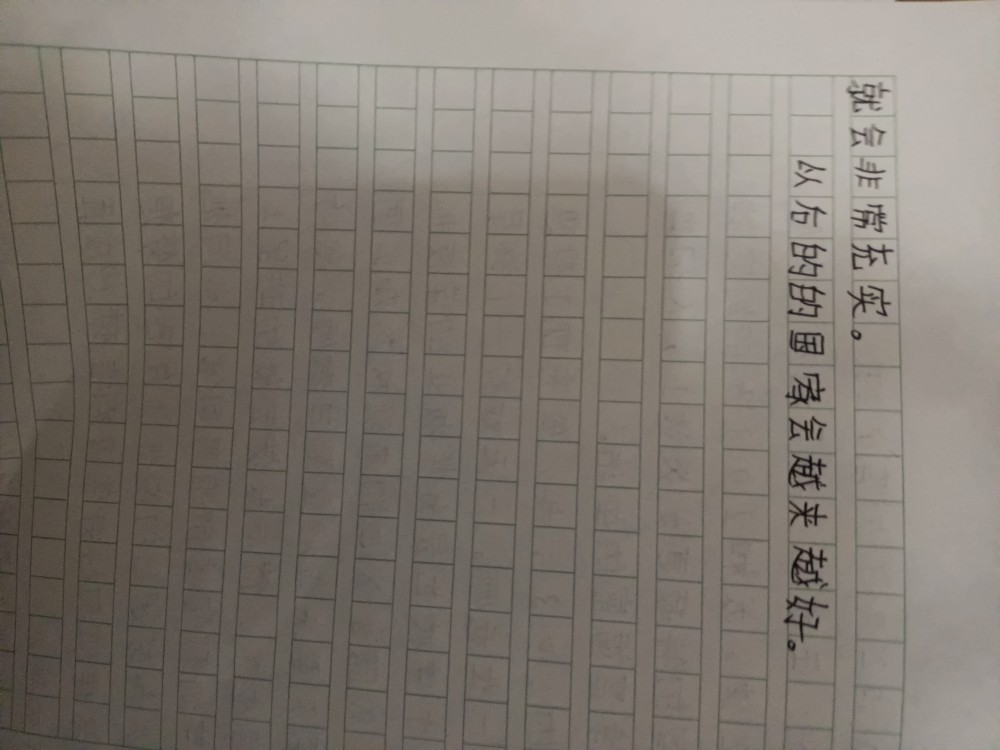 就会非常充实。
以后的的国家会越来越好。